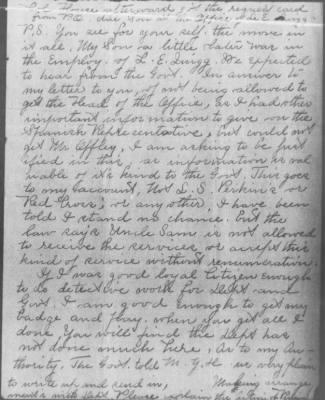 P.S. You see for your self. the move in
it all, My Son (a little later was in
the Employ. of L. E. Lugg. We expected
to hear from the Govt. In answer to
my letter to you, of not being allowed to
get the Head of the Office, as I had other
important information to give on the
Spanish Representative, But could not
get Mr Offley, I am asking to be just
ified in this, as information is val
uable of it's kind to the Govt. This goes
to my account, Not L. S. Perkins or
Red Cross, or any other. I have been
told I stand no chance. But the
law says Uncle Sam is not allowed
to receive the services or accept this
kind of service without renumeration.
If I was good loyal Citizen enough
to do detective work for Dept. and
Govt. I am good enough to get my
badge and pay. when you get all I
done you will find the Dept has
not done much here, As to my Au-
thority, The Govt. told M. Y. H us very plain
to write up and send in, Making arrange
ments with Dept. Please